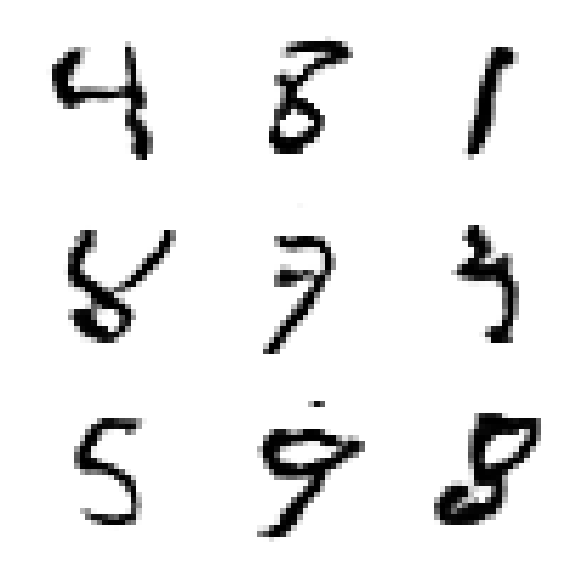 4 8 1
8 7 3
5 9 8